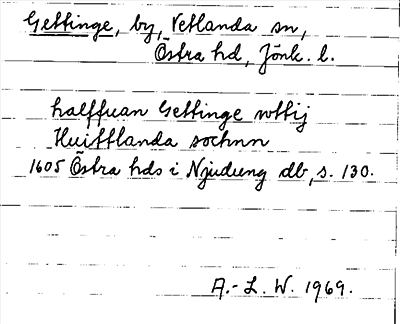 Gettinge, by, Vetlanda sn,
Östra hd, Jönk. l.
halffuan Gettinge wttij
Huittlanda sochnn
1605 Östra hds i Njudung db, s. 130.
A.-L. W. 1969.